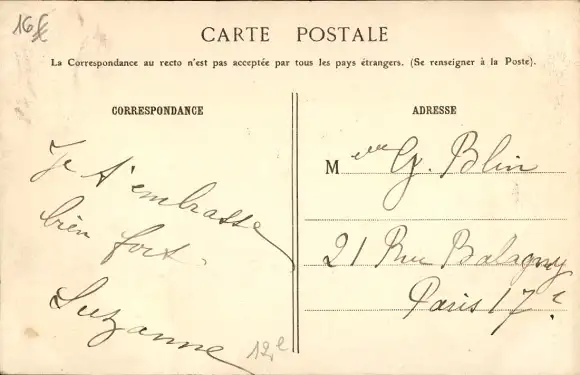 16€
CARTE POSTALE
La Correspondance au recto n'est pas acceptée par tous les pays étrangers. (Se renseigner à la Poste).
CORRESPONDANCE
Je t'embrasse
bien fort.
Suzanne
12.e
ADRESSE
Melle G. Blin
21 Rue Balagny
Paris 17e